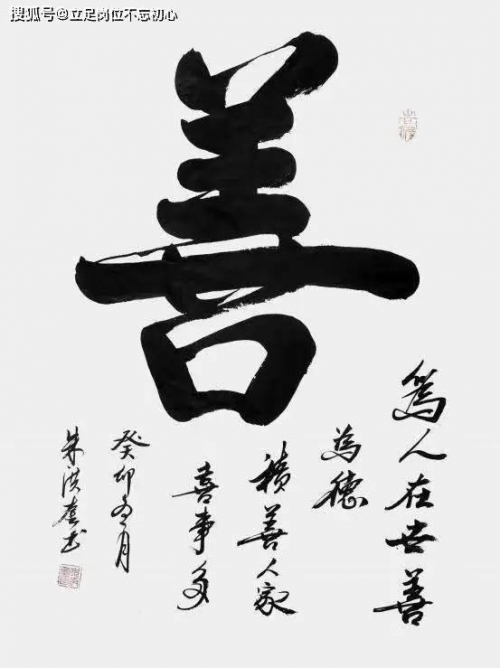 搜狐号@立足岗位不忘初心
善
為人在世善
為德
積善人家
喜事多
癸卯冬月
朱洪奎书